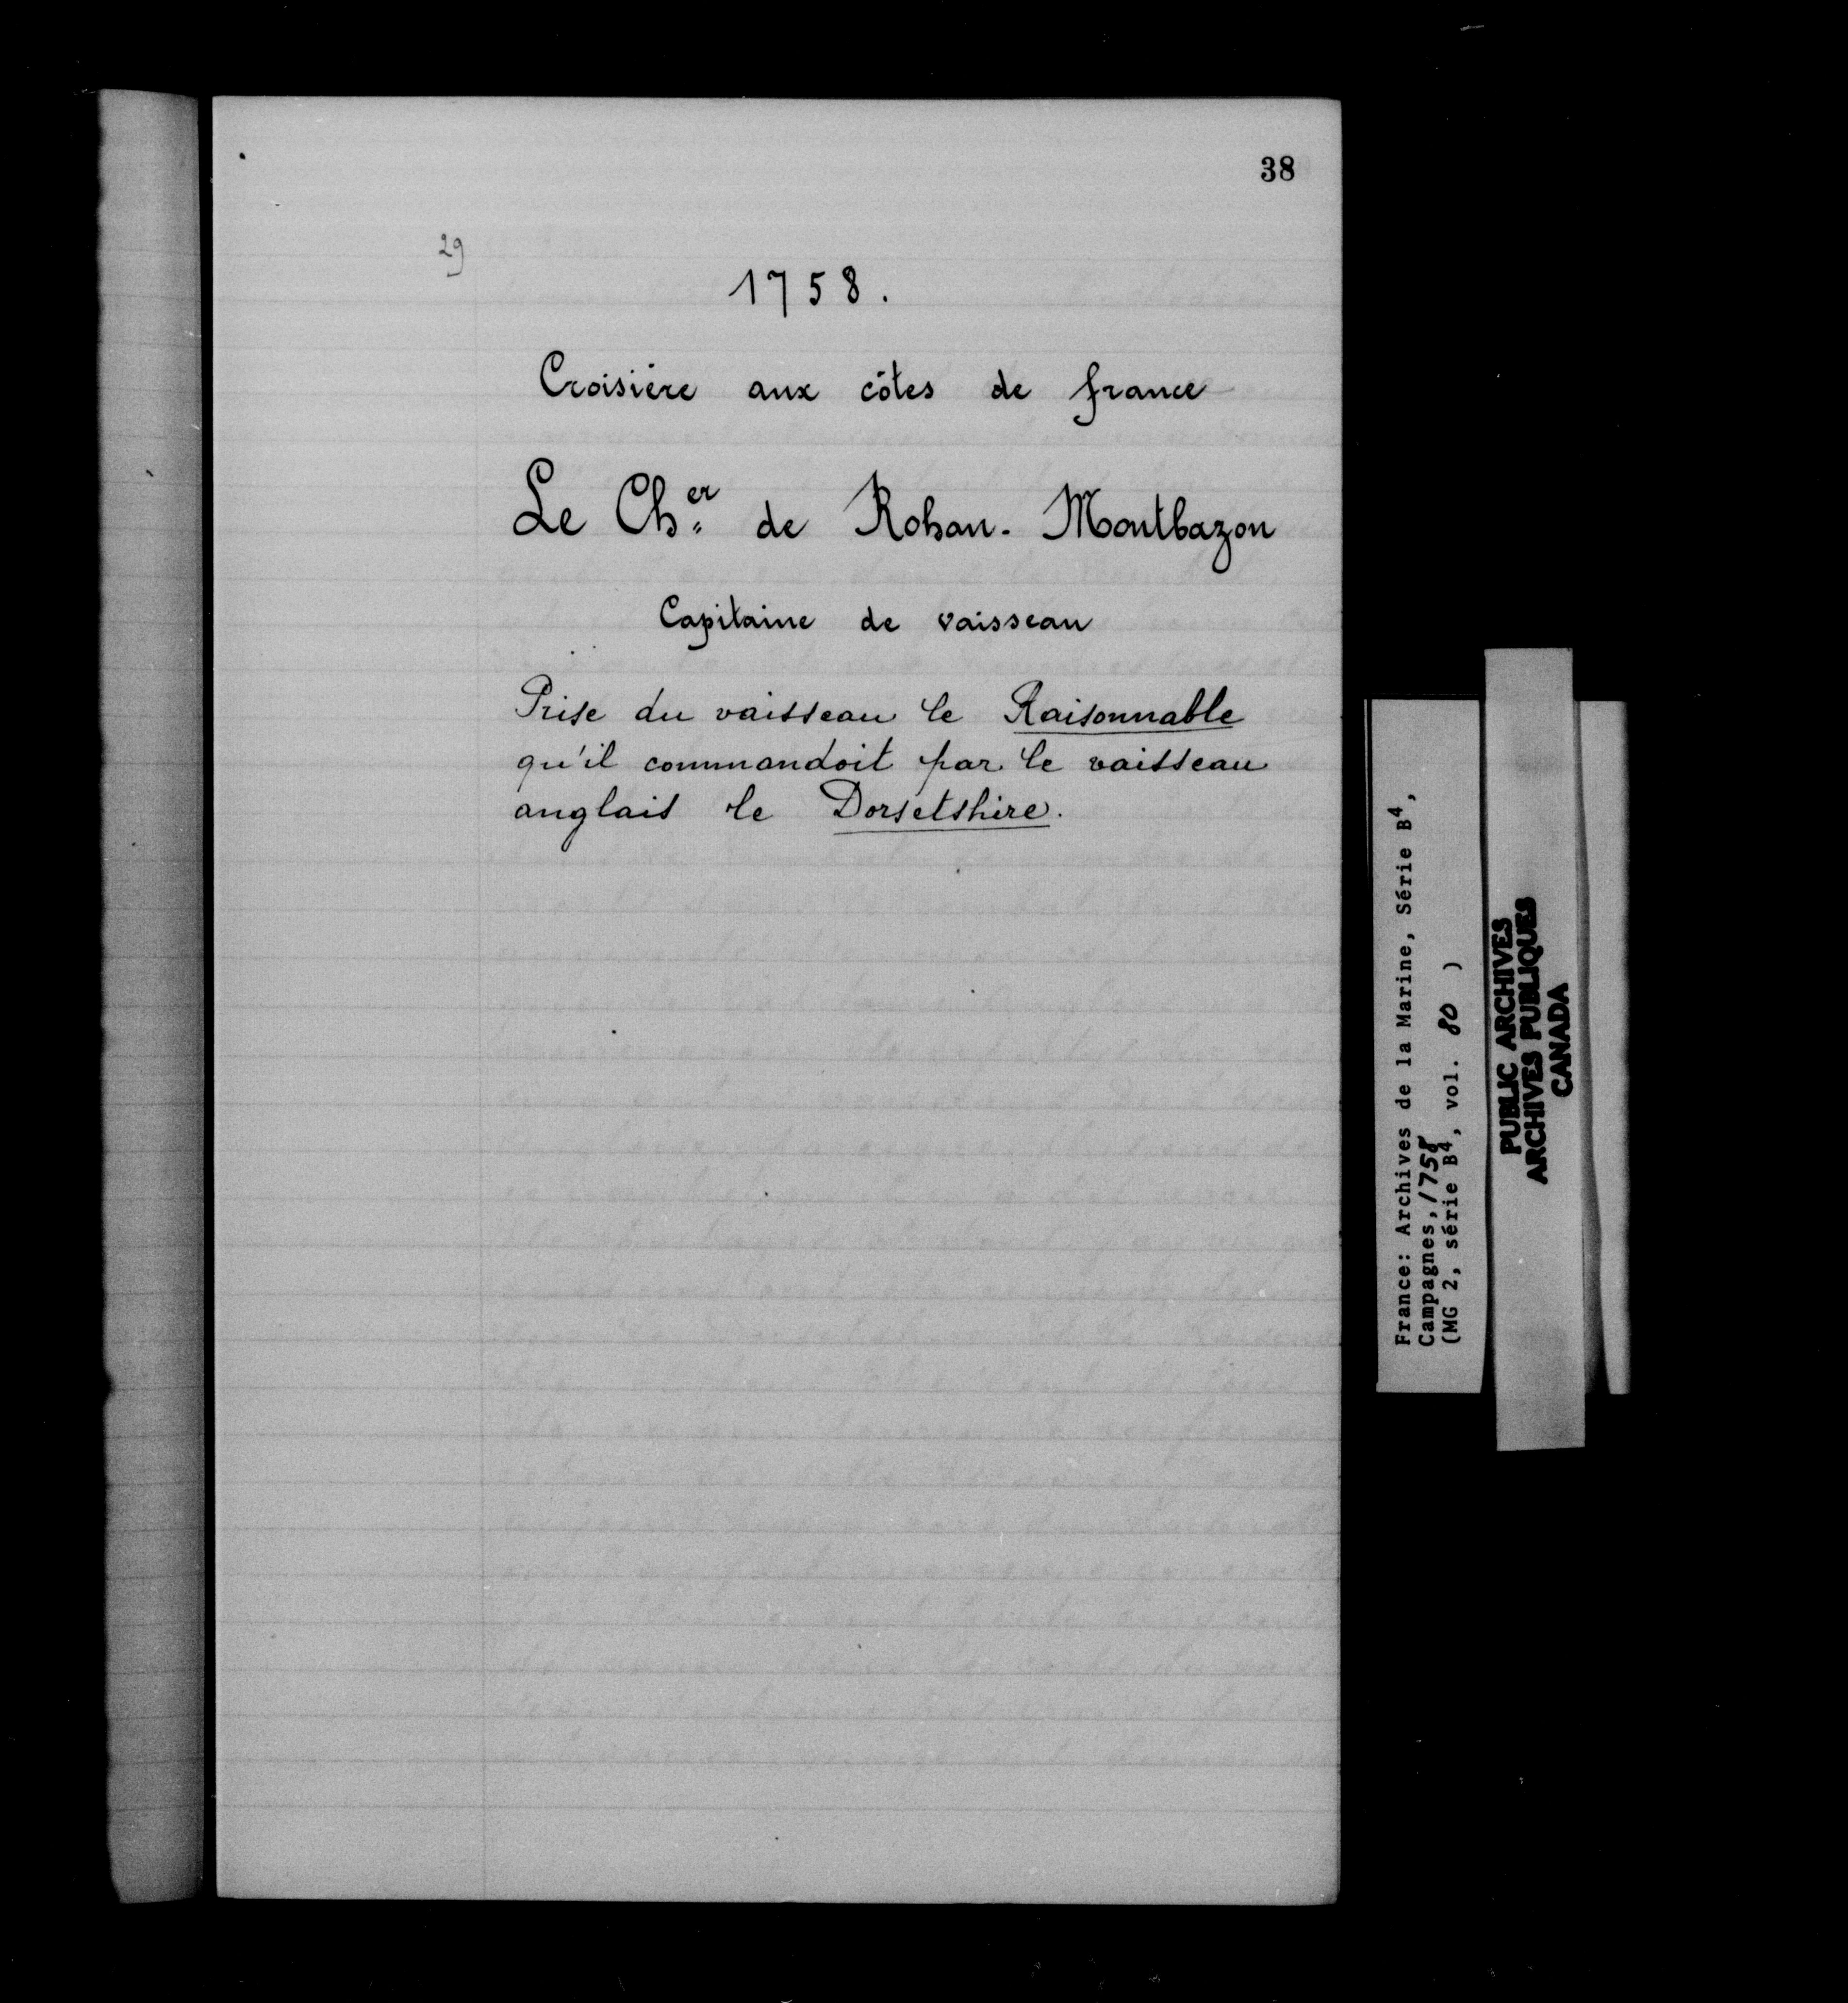 38
29
1758.
Croisière aux côtes de france
Le Ch.er de Rohan-Montbazon
Capitaine de vaisseau
Prise du vaisseau le Raisonnable
qu'il commandoit par le vaisseau
anglais le Dorsetshire.
France: Archives de la Marine, Série B4,
Campagnes, 1758
(MG 2, série B4, vol. 80 )
PUBLIC ARCHIVES
ARCHIVES PUBLIQUES
CANADA